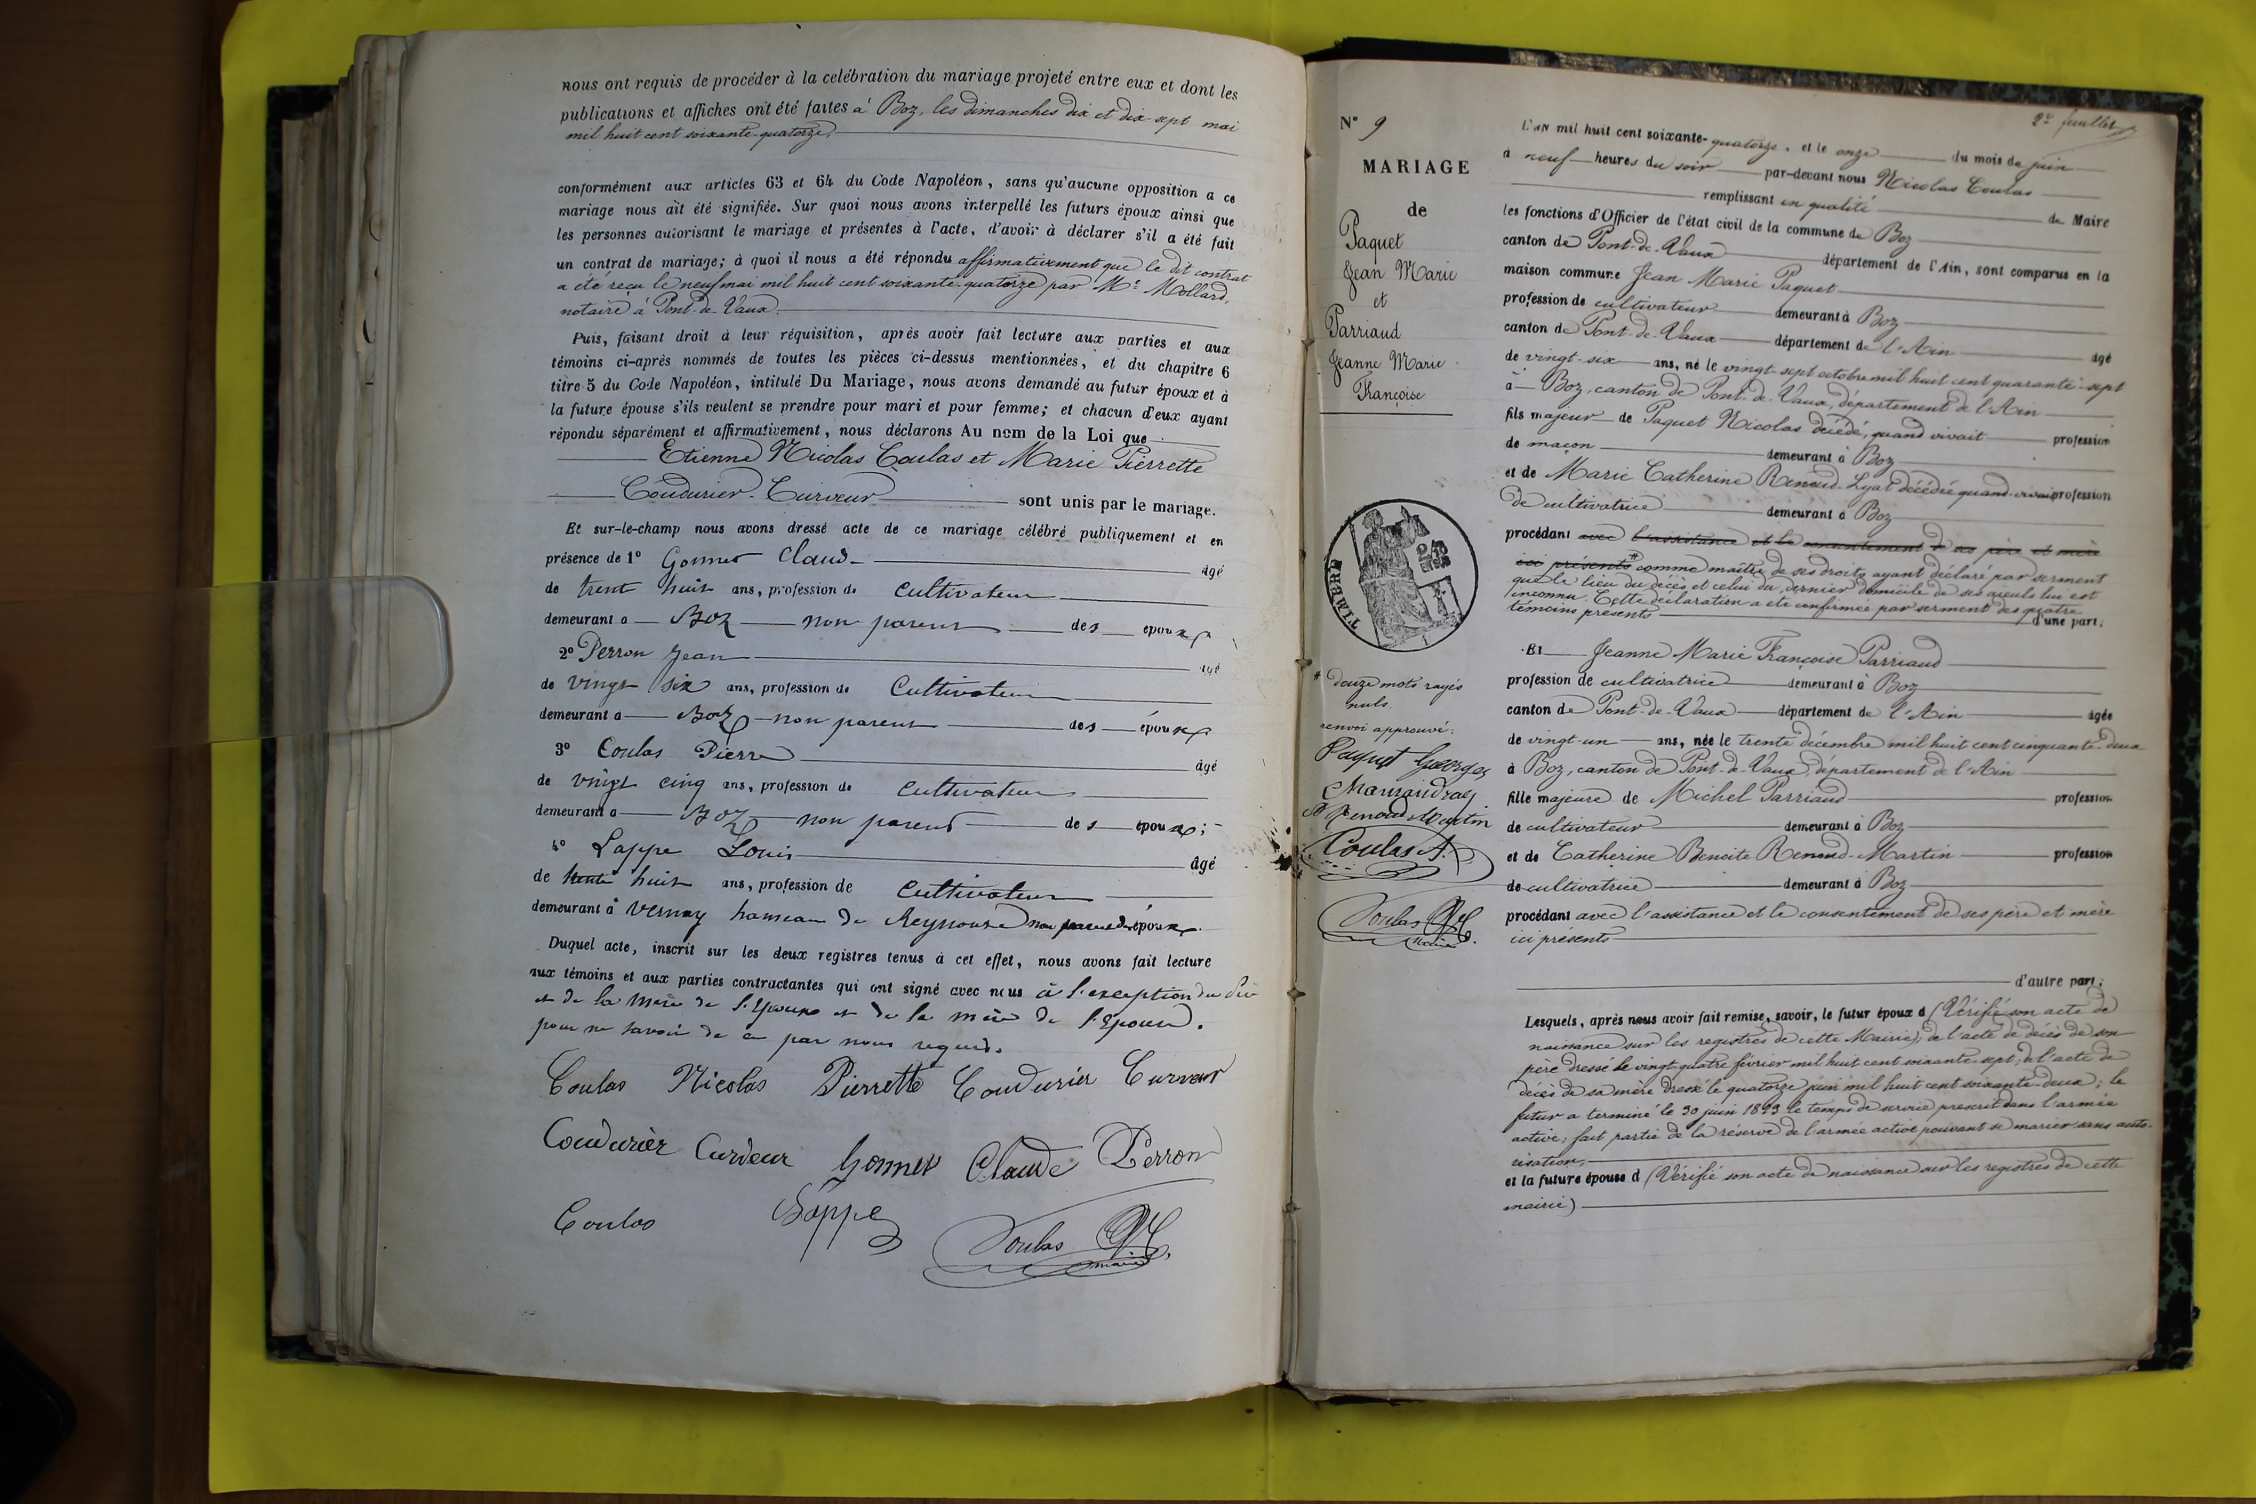 nous ont requis de procéder à la celébration du mariage projeté entre eux et dont les
publications et affiches ont été faites à Boz, les dimanches dix et dix sept mai
mil huit cent soixante-quatorze,
conformément aux articles 63 et 64 du Code Napoléon, sans qu'aucune opposition a ce
mariage nous ait été signifiée. Sur quoi nous avons interpellé les futurs époux ainsi que
les personnes autorisant le mariage et présentes à l'acte, d'avoir à déclarer s'il a été fait
un contrat de mariage; à quoi il nous a été répondu affirmativement que le dit contrat
a été reçu le neuf mai mil huit cent soixante-quatorze par Me Mollard,
notaire à Pont-de-Vaux.
Puis, faisant droit à leur réquisition, après avoir fait lecture aux parties et aux
témoins ci-après nommés de toutes les pièces ci-dessus mentionnées, et du chapitre 6
titre 5 du Code Napoléon, intitulé Du Mariage, nous avons demandé au futur époux et à
la future épouse s'ils veulent se prendre pour mari et pour femme; et chacun d'eux ayant
répondu séparément et affirmativement, nous déclarons Au nom de la Loi que
Etienne Nicolas Coulas et Marie Pierrette
Coudurier-Curveur sont unis par le mariage.
Et sur-le-champ nous avons dressé acte de ce mariage célébré publiquement et en
présence de 1° Gonnet Claud âgé
de trent huit ans, profession de cultivateur
demeurant a Boz non parent des epoux
2° Perron Jean âgé
de vingt six ans, profession de Cultivateur
demeurant a Boz non parent des époux
3° Coulas Pierre âgé
de vingt cinq ans, profession de cultivateur
demeurant a Boz non parent des époux;
4° Lappe Louis âgé
de trente huit ans, profession de cultivateur
demeurant à Vernay hameau de Reyssouze non parent des époux.
Duquel acte, inscrit sur les deux registres tenus à cet effet, nous avons fait lecture
aux témoins et aux parties contractantes qui ont signé avec nous à l'exception du
et de la mère de l'Epoux et de la mère de l'Epouse.
pour ne savoir de ce par nous requis.
Coulas Nicolas Pierrette Coudurier Curveur
Coudurier Curveur Gonnet Claude Perron
Coulas Lappe Coulas
maire
2e feuillet
N° 9
MARIAGE
de
Paquet
Jean Marie
et
Parriaud
Jeanne Marie
Françoise
TIMBRE
* douze mots rayés
nuls.
renvoi approuvé:
Paquet Georges
Renoud Martin
Coulas A.
Coulas
maire
L'AN mil huit cent soixante-quatorze, et le onze du mois de juin
à neuf heures du soir par-devant nous Nicolas Coulas
remplissant en qualité de Maire
les fonctions d'Officier de l'état civil de la commune de Boz
canton de Pont-de-Vaux département de l'Ain, sont comparus en la
maison commune Jean Marie Paquet
profession de cultivateur demeurant à Boz
canton de Pont-de-Vaux département de l'Ain âgé
de vingt-six ans, né le vingt-sept octobre mil huit cent quarante-sept
à Boz, canton de Pont-de-Vaux, département de l'Ain
fils majeur de Paquet Nicolas décédé, quand vivait profession
de maçon demeurant à Boz
et de Marie Catherine Renoud-Lyat décédée quand vivait profession
de cultivatrice demeurant à Boz
procédant avec l'assistance et le consentement de ses père et mère
ici présents * comme maître de ses droits ayant déclaré par serment
que le lieu du décès et celui du dernier domicile de ses aïeuls lui est
inconnu. Cette déclaration a été confirmée par serment des quatre
témoins présents d'une part;
Et Jeanne Marie Françoise Parriaud
profession de cultivatrice demeurant à Boz
canton de Pont-de-Vaux département de l'Ain âgée
de vingt-un ans, née le trente décembre mil huit cent cinquante-deux
à Boz, canton de Pont-de-Vaux, département de l'Ain
fille majeure de Michel Parriaud profession
de cultivateur demeurant à Boz
et de Catherine Benoite Renoud-Martin profession
de cultivatrice demeurant à Boz
procédant avec l'assistance et le consentement de ses père et mère
ici présents
d'autre part;
Lesquels, après nous avoir fait remise, savoir, le futur époux d (Vérifié son acte de
naissance sur les registres de cette Mairie); de l'acte de décès de son
père dressé le vingt-quatre février mil huit cent soixante-sept; de l'acte de
décès de sa mère dressé le quatorze juin mil huit cent soixante-deux; le
futur a terminé le 30 juin 1873 le temps de service prescrit dans l'armée
active; fait partie de la réserve de l'armée active pouvant se marier sans auto-
risation;
et la future épouse d (Vérifié son acte de naissance sur les registres de cette
mairie)